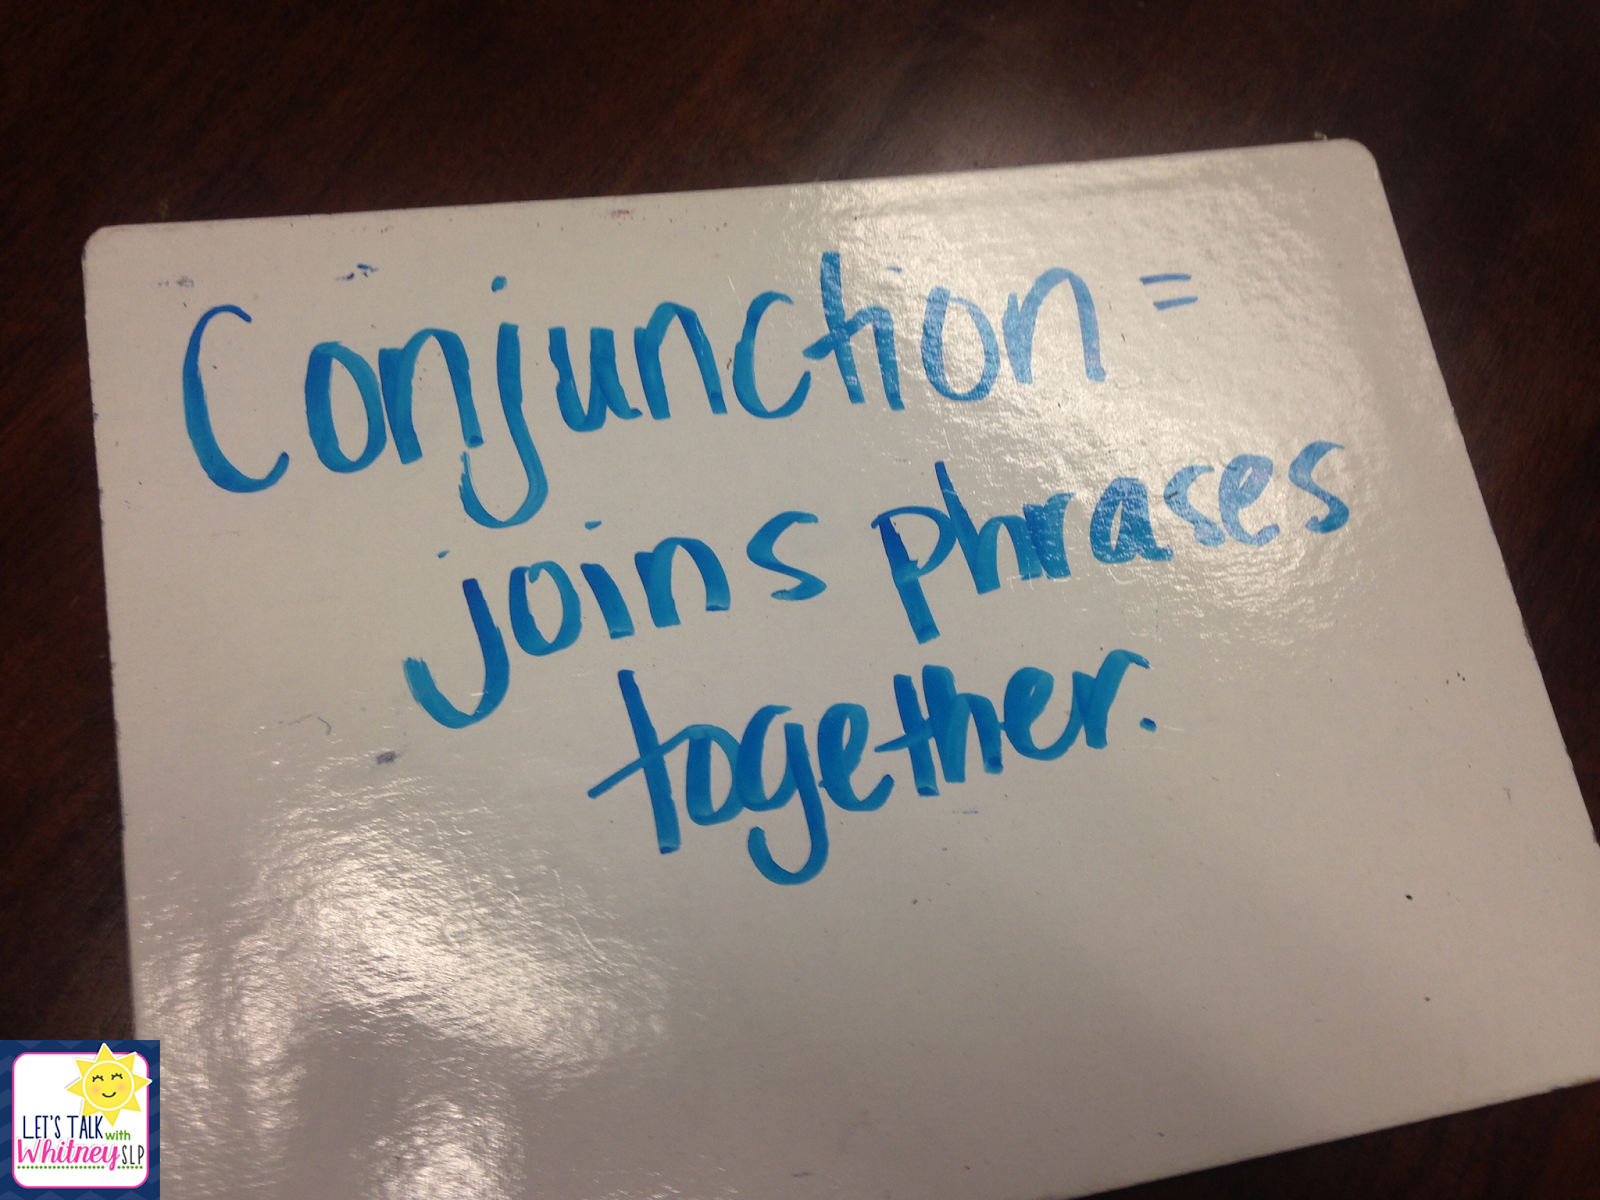 Conjunction =
joins phrases
together.
LET'S TALK with
Whitney SLP